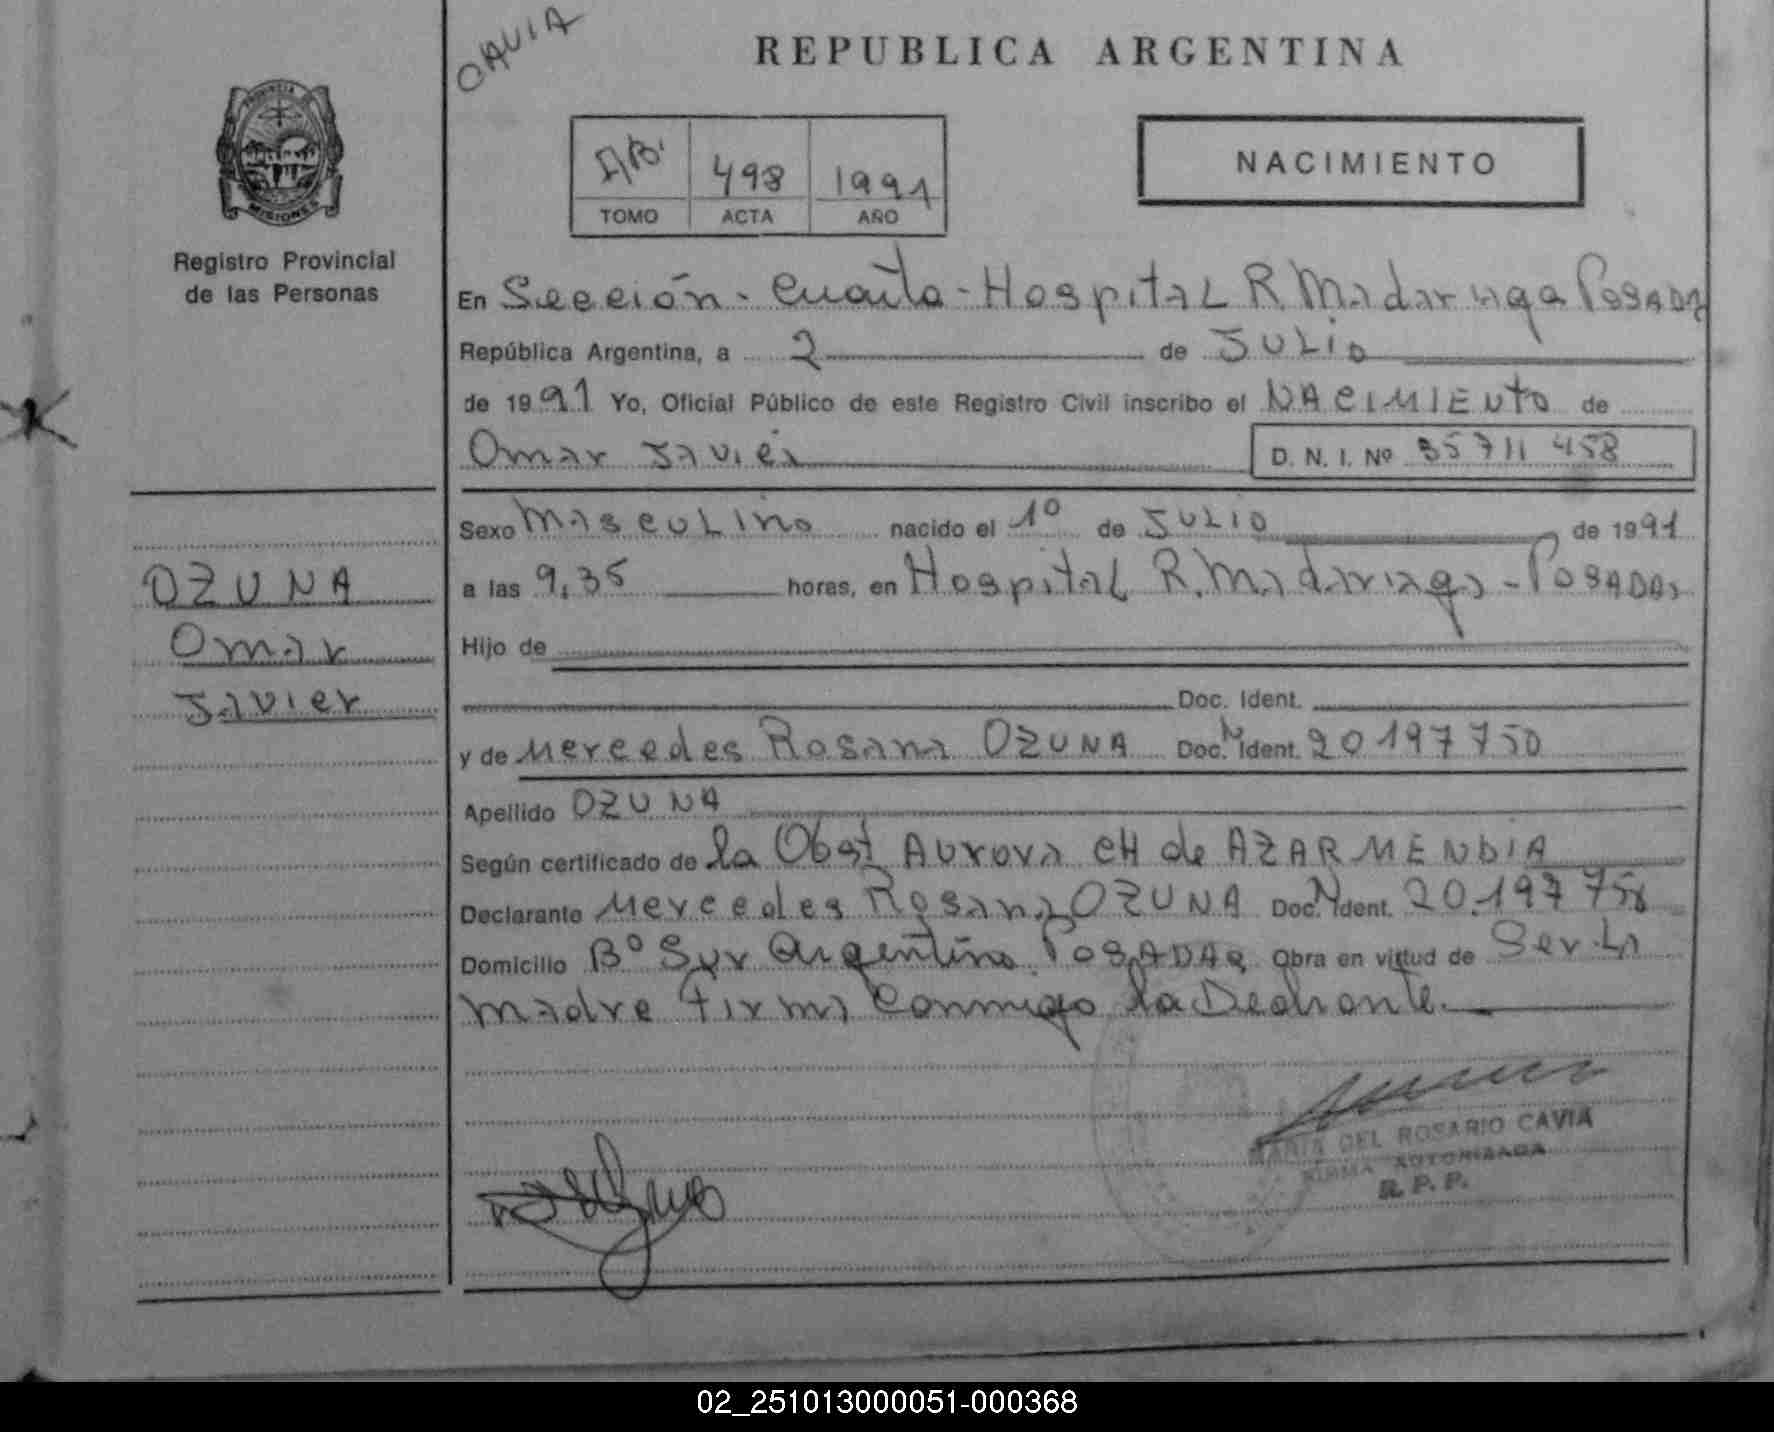 CAVIA
REPUBLICA ARGENTINA
PROVINCIA DE
MISIONES
Registro Provincial
de las Personas
498 1991
TOMO ACTA AÑO
NACIMIENTO
En Sección - Cuarta - Hospital R. Madariaga Posadas
República Argentina, a 2 de Julio
de 1991 Yo, Oficial Público de este Registro Civil inscribo el NACIMIENTO de
Omar Javier D. N. I. Nº 35711458
Sexo Masculino nacido el 1º de Julio de 1991
a las 9,35 horas, en Hospital R. Madariaga - Posadas
Hijo de
Doc. Ident.
y de Mercedes Rosana OZUNA Doc. N Ident. 20197750
Apellido OZUNA
Según certificado de la Obst Aurora CH de AZARMENDIA
Declarante Mercedes Rosana OZUNA Doc. N Ident. 20.197
Domicilio Bº Sur Argentino POSADAS Obra en virtud de Ser La
madre firma Conmigo la
OZUNA
Omar
Javier
MARIA DEL ROSARIO CAVIA
FIRMA AUTORIZADA
R. P. P.
02_251013000051-000368